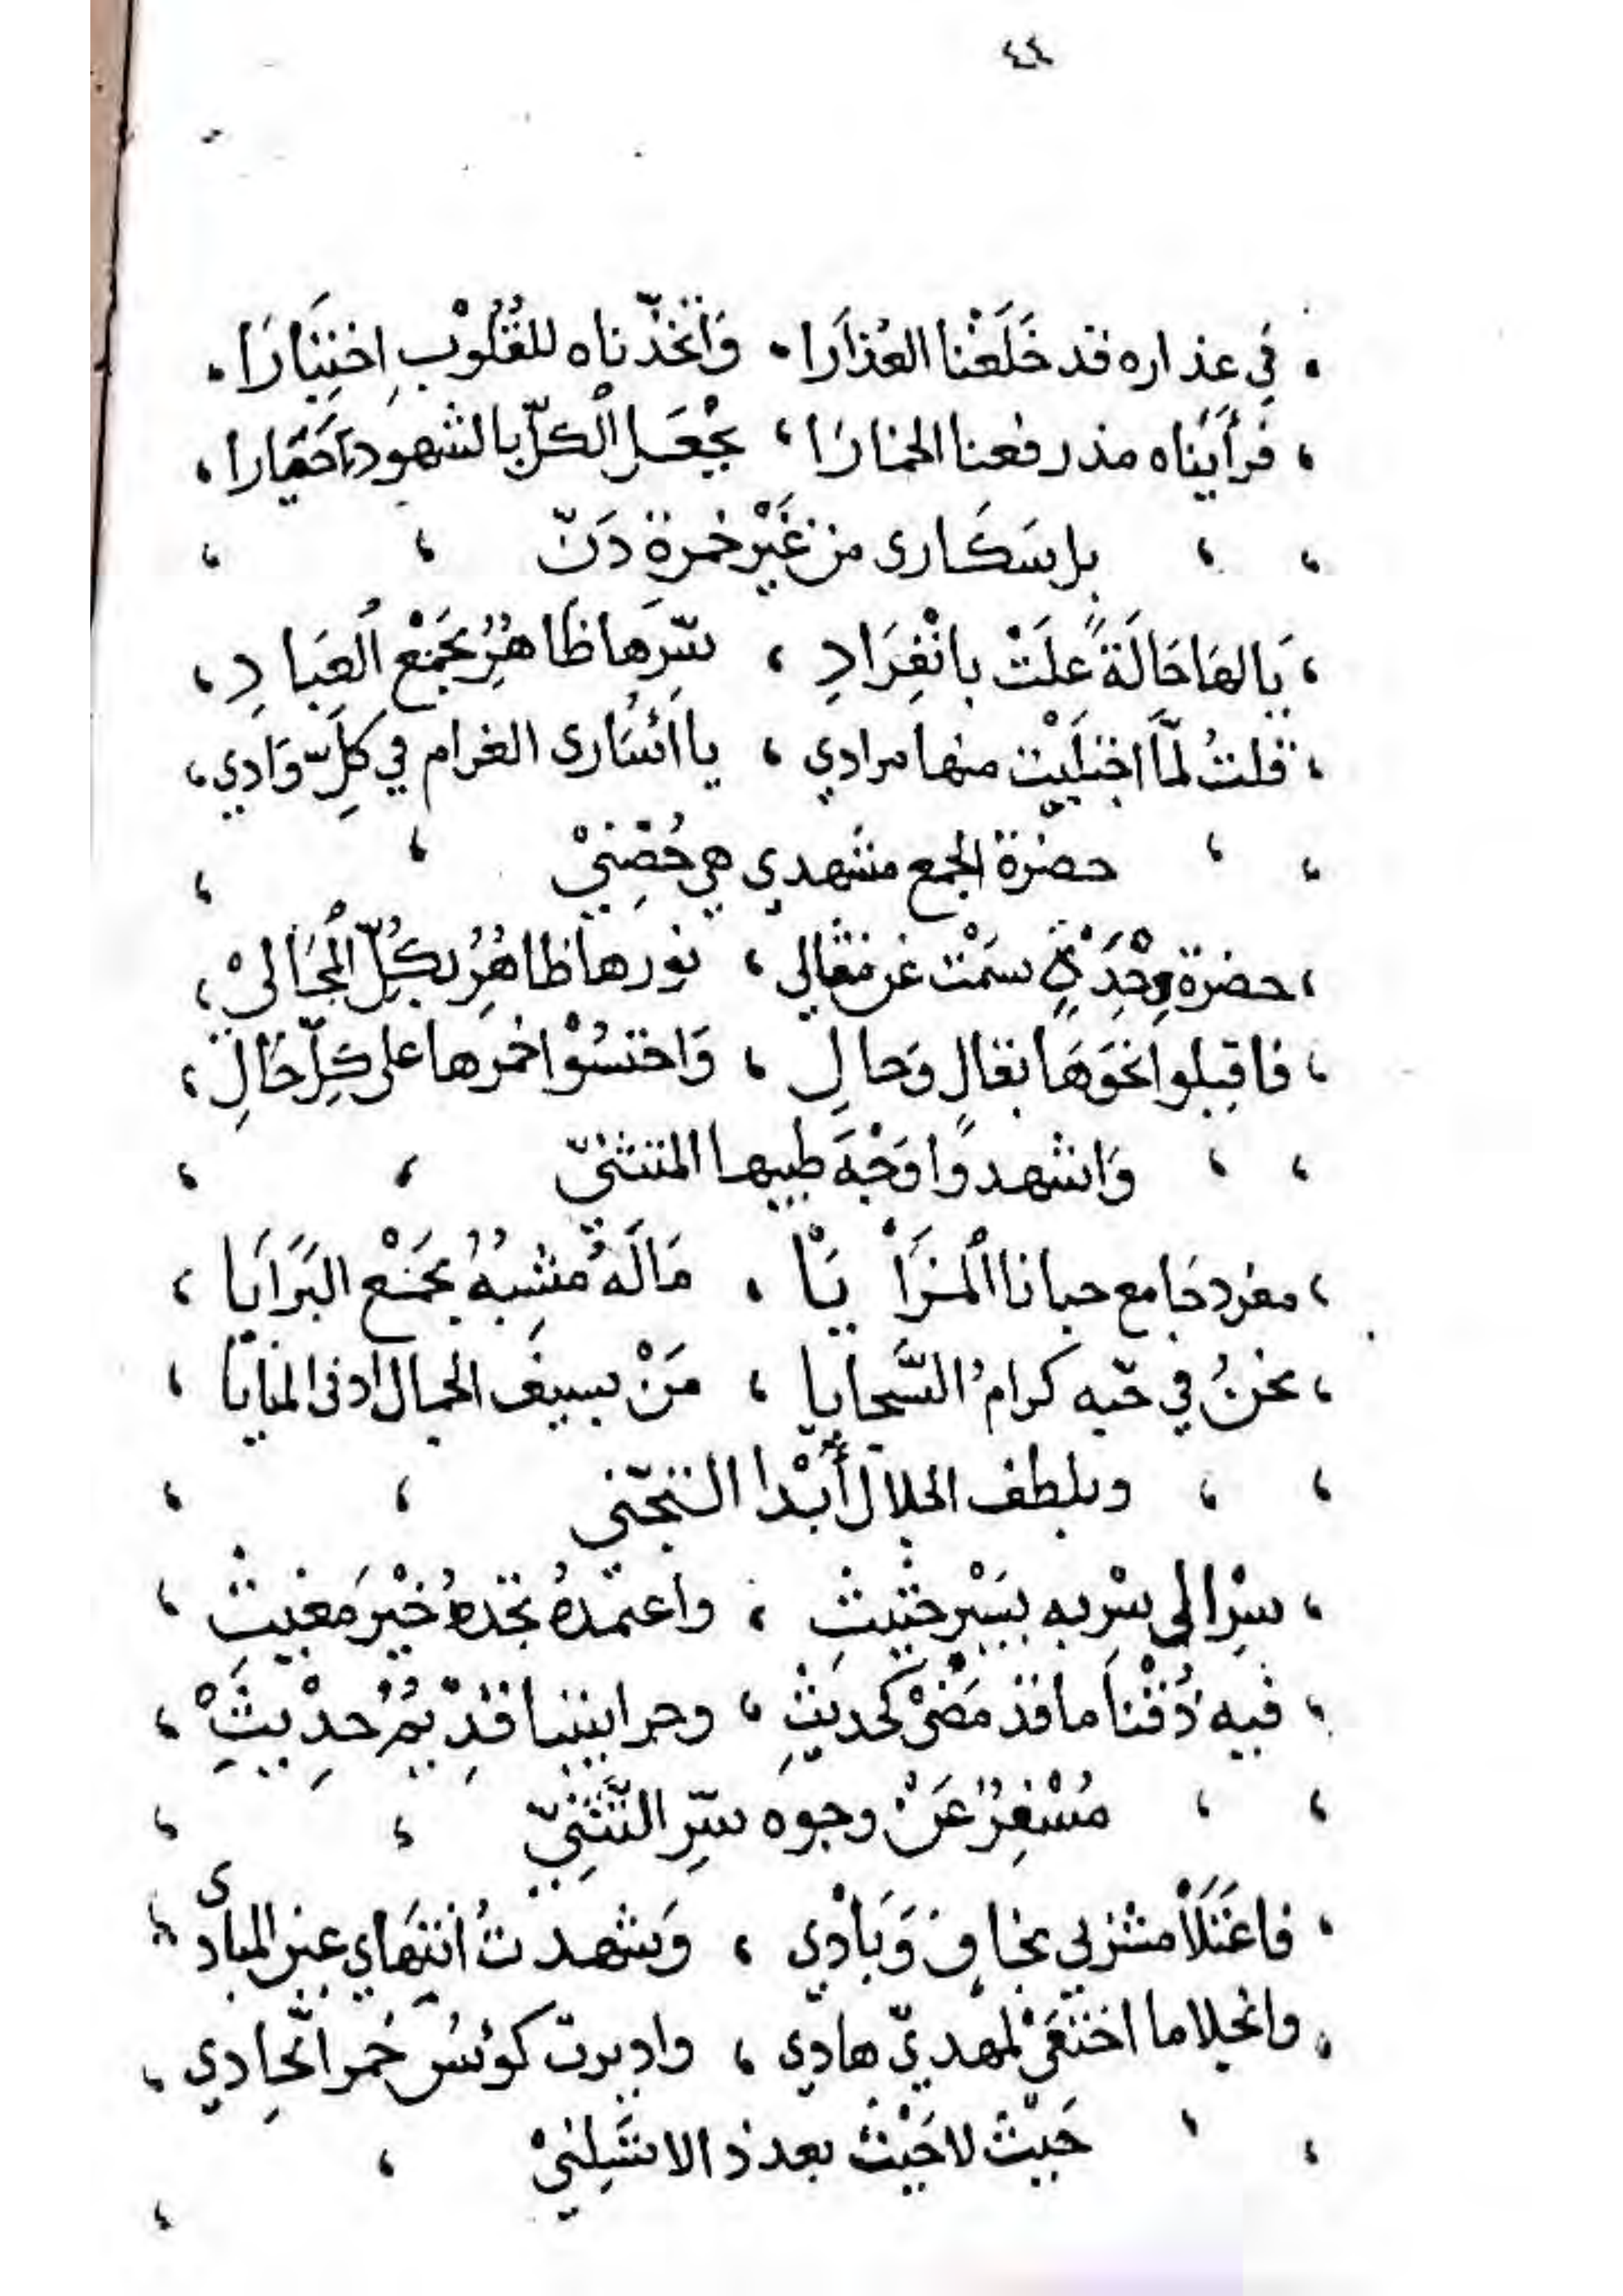 ٤٤
. في عذاره قد خَلَعْنا العُذارَا . وَاتَّخَذْناه للقُلُوْبِ اِخْتِيَارَا .
، فَرأَيْناه مذ رفعنا الخمارَا ، بجْعَل الكلّ بالشهود حَيَارا ،
، ، بل سَكَارى من غَيْر خمرةِ دَنّ ، ،
، يَا لهَا حَالَةً عَلَتْ بانْفِرَادِ ، سّرها ظَاهِرُ بجَمْع العِبَادِ ،
، قلتُ لمّا اجْتَلَيْت منها مرادي ، يا أُسَارى الغرام في كلِّ وَادي ،
، ، حضرة الجمع مشهدي هي حُصْنِيْ ، ،
، حضرة وِحْدَةٍ سَمَتْ عن مَقالي ، نورها ظاهِرُ بكُلّ المَجَاليْ ،
، فاقبلوا نحَوَهَا بقالٍ وَحالِ ، وَاحتسُوْا خمرها على كلِّ حَالِ ،
، ، وَاشهدوا وَجْهَ طيبها المتثنّي ، ،
، مفرد جَامع حبانا المَزَايَا ، مَالَهُ مُشِبهُ بجَمْع البَرَايَا ،
، نحنُ في حّبه كرامُ السَّجايا ، مَنْ بسيف الجمال ادنى المنايَا ،
، ، وبلطف الجلال أَبْدا التجّني ، ،
، سِرْ الى سْربه بسَيْر حثيثِ ، واعتمدْهُ تجدْهُ خَيْر مَغيثِ ،
، فيه ذُقْنا ما قدْ مَضَىْ كحديثِ ، وجرا بيننا قدِيمُ حدِيْثِ ،
، ، مُسْفِرُ عَنْ وجوه سّرِ التَّثَنِّيْ ، ،
، فاعْتَلَا مشربي بخافٍ وَبَادي ، وَشهدتُ انتهَاي عين المبادى ،
، وانجلا ما اختفَىْ لمهديّ هادي ، واديرت كوئسُ خمر الحِادي ،
، ، حَيْث لا حَيْث بعد ذا لا تسَلنيْ ، ،